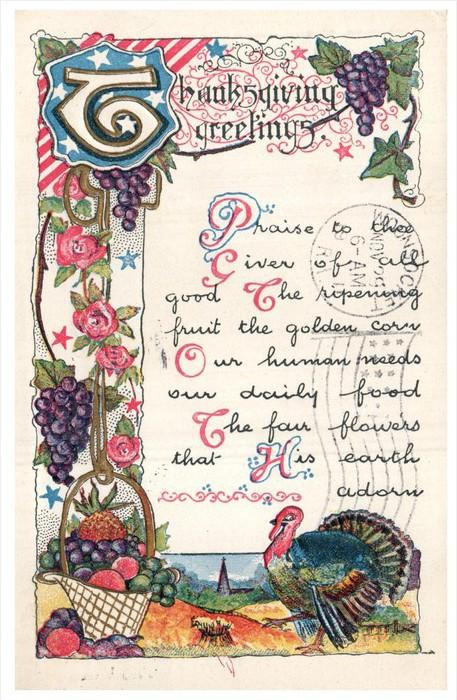 Thanksgiving
greetings.
Praise to thee
Giver of all
good The ripening
fruit the golden corn
Our human needs
our daily food
The fair flowers
that His earth
adorn
NOV 2
6-AM
09